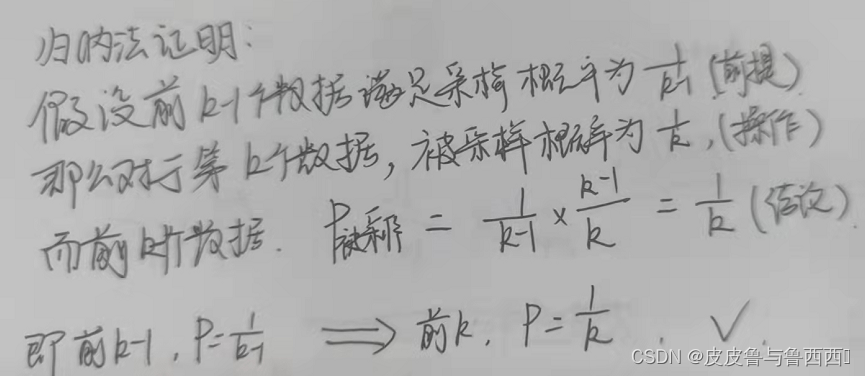 归纳法证明:
假设前k-1个数据满足采样概率为 1/k-1 (前提)
那么对于第k个数据, 被采样概率为 1/k, (操作)
而前k-1个数据. P被采样 = 1/k-1 × k-1/k = 1/k (结论).
即前k-1, P=1/k-1 ⟹ 前k, P=1/k . ✓
CSDN @皮皮鲁与鲁西西